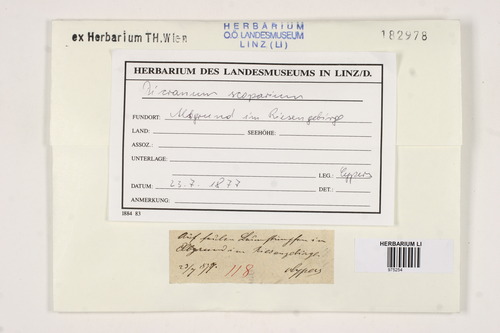 ex Herbarium TH.Wien
HERBARIUM
O.Ö LANDESMUSEUM
LINZ (LI)
182978
HERBARIUM DES LANDESMUSEUMS IN LINZ/D.
Dicranum scoparium
FUNDORT: Abgrund im Riesengebirge
LAND: SEEHÖHE:
ASSOZ.:
UNTERLAGE:
LEG.: Cypers
DATUM: 23.7.1877 DET.:
ANMERKUNG:
1884 83
Auf faulen Baumstümpfen im
Abgrund im Riesengebirge.
23/7 877. 118 Cypers
HERBARIUM LI
975254